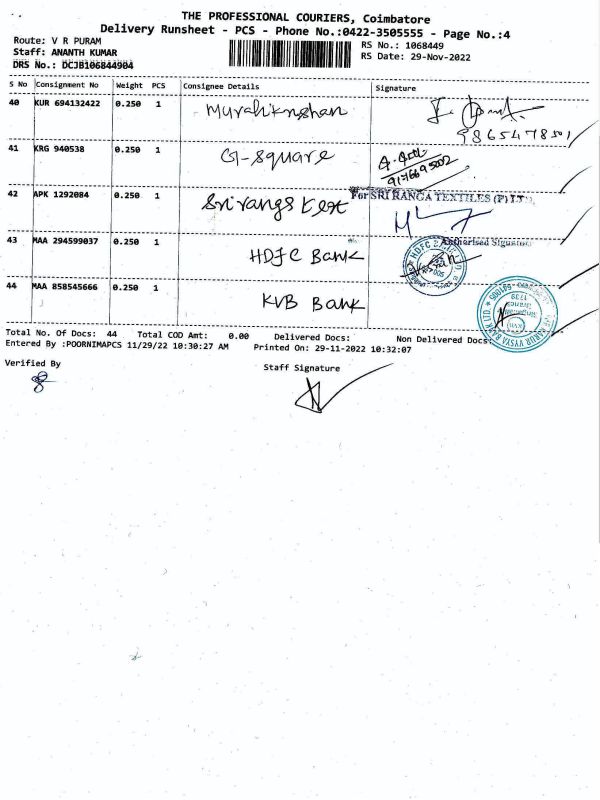 THE PROFESSIONAL COURIERS, Coimbatore
Delivery Runsheet - PCS - Phone No.:0422-3505555 - Page No.:4
Route: V R PURAM
RS No.: 1068449
Staff: ANANTH KUMAR
RS Date: 29-Nov-2022
DRS No.: DCJB106844904
S No Consignment No Weight PCS Consignee Details Signature
40 KUR 694132422 0.250 1
9865478501
41 KRG 940538 0.250 1 G-Square
9176695002
42 APK 1292084 0.250 1 Sriranga text
For SRI RANGA TEXTILES (P) LTD.,
Authorised Signatory
43 MAA 294599037 0.250 1 HDFC Bank
44 MAA 858545666 0.250 1 KVB Bank
Total No. Of Docs: 44 Total COD Amt: 0.00 Delivered Docs: Non Delivered Docs:
Entered By :POORNIMAPCS 11/29/22 10:30:27 AM Printed On: 29-11-2022 10:32:07
Verified By
Staff Signature